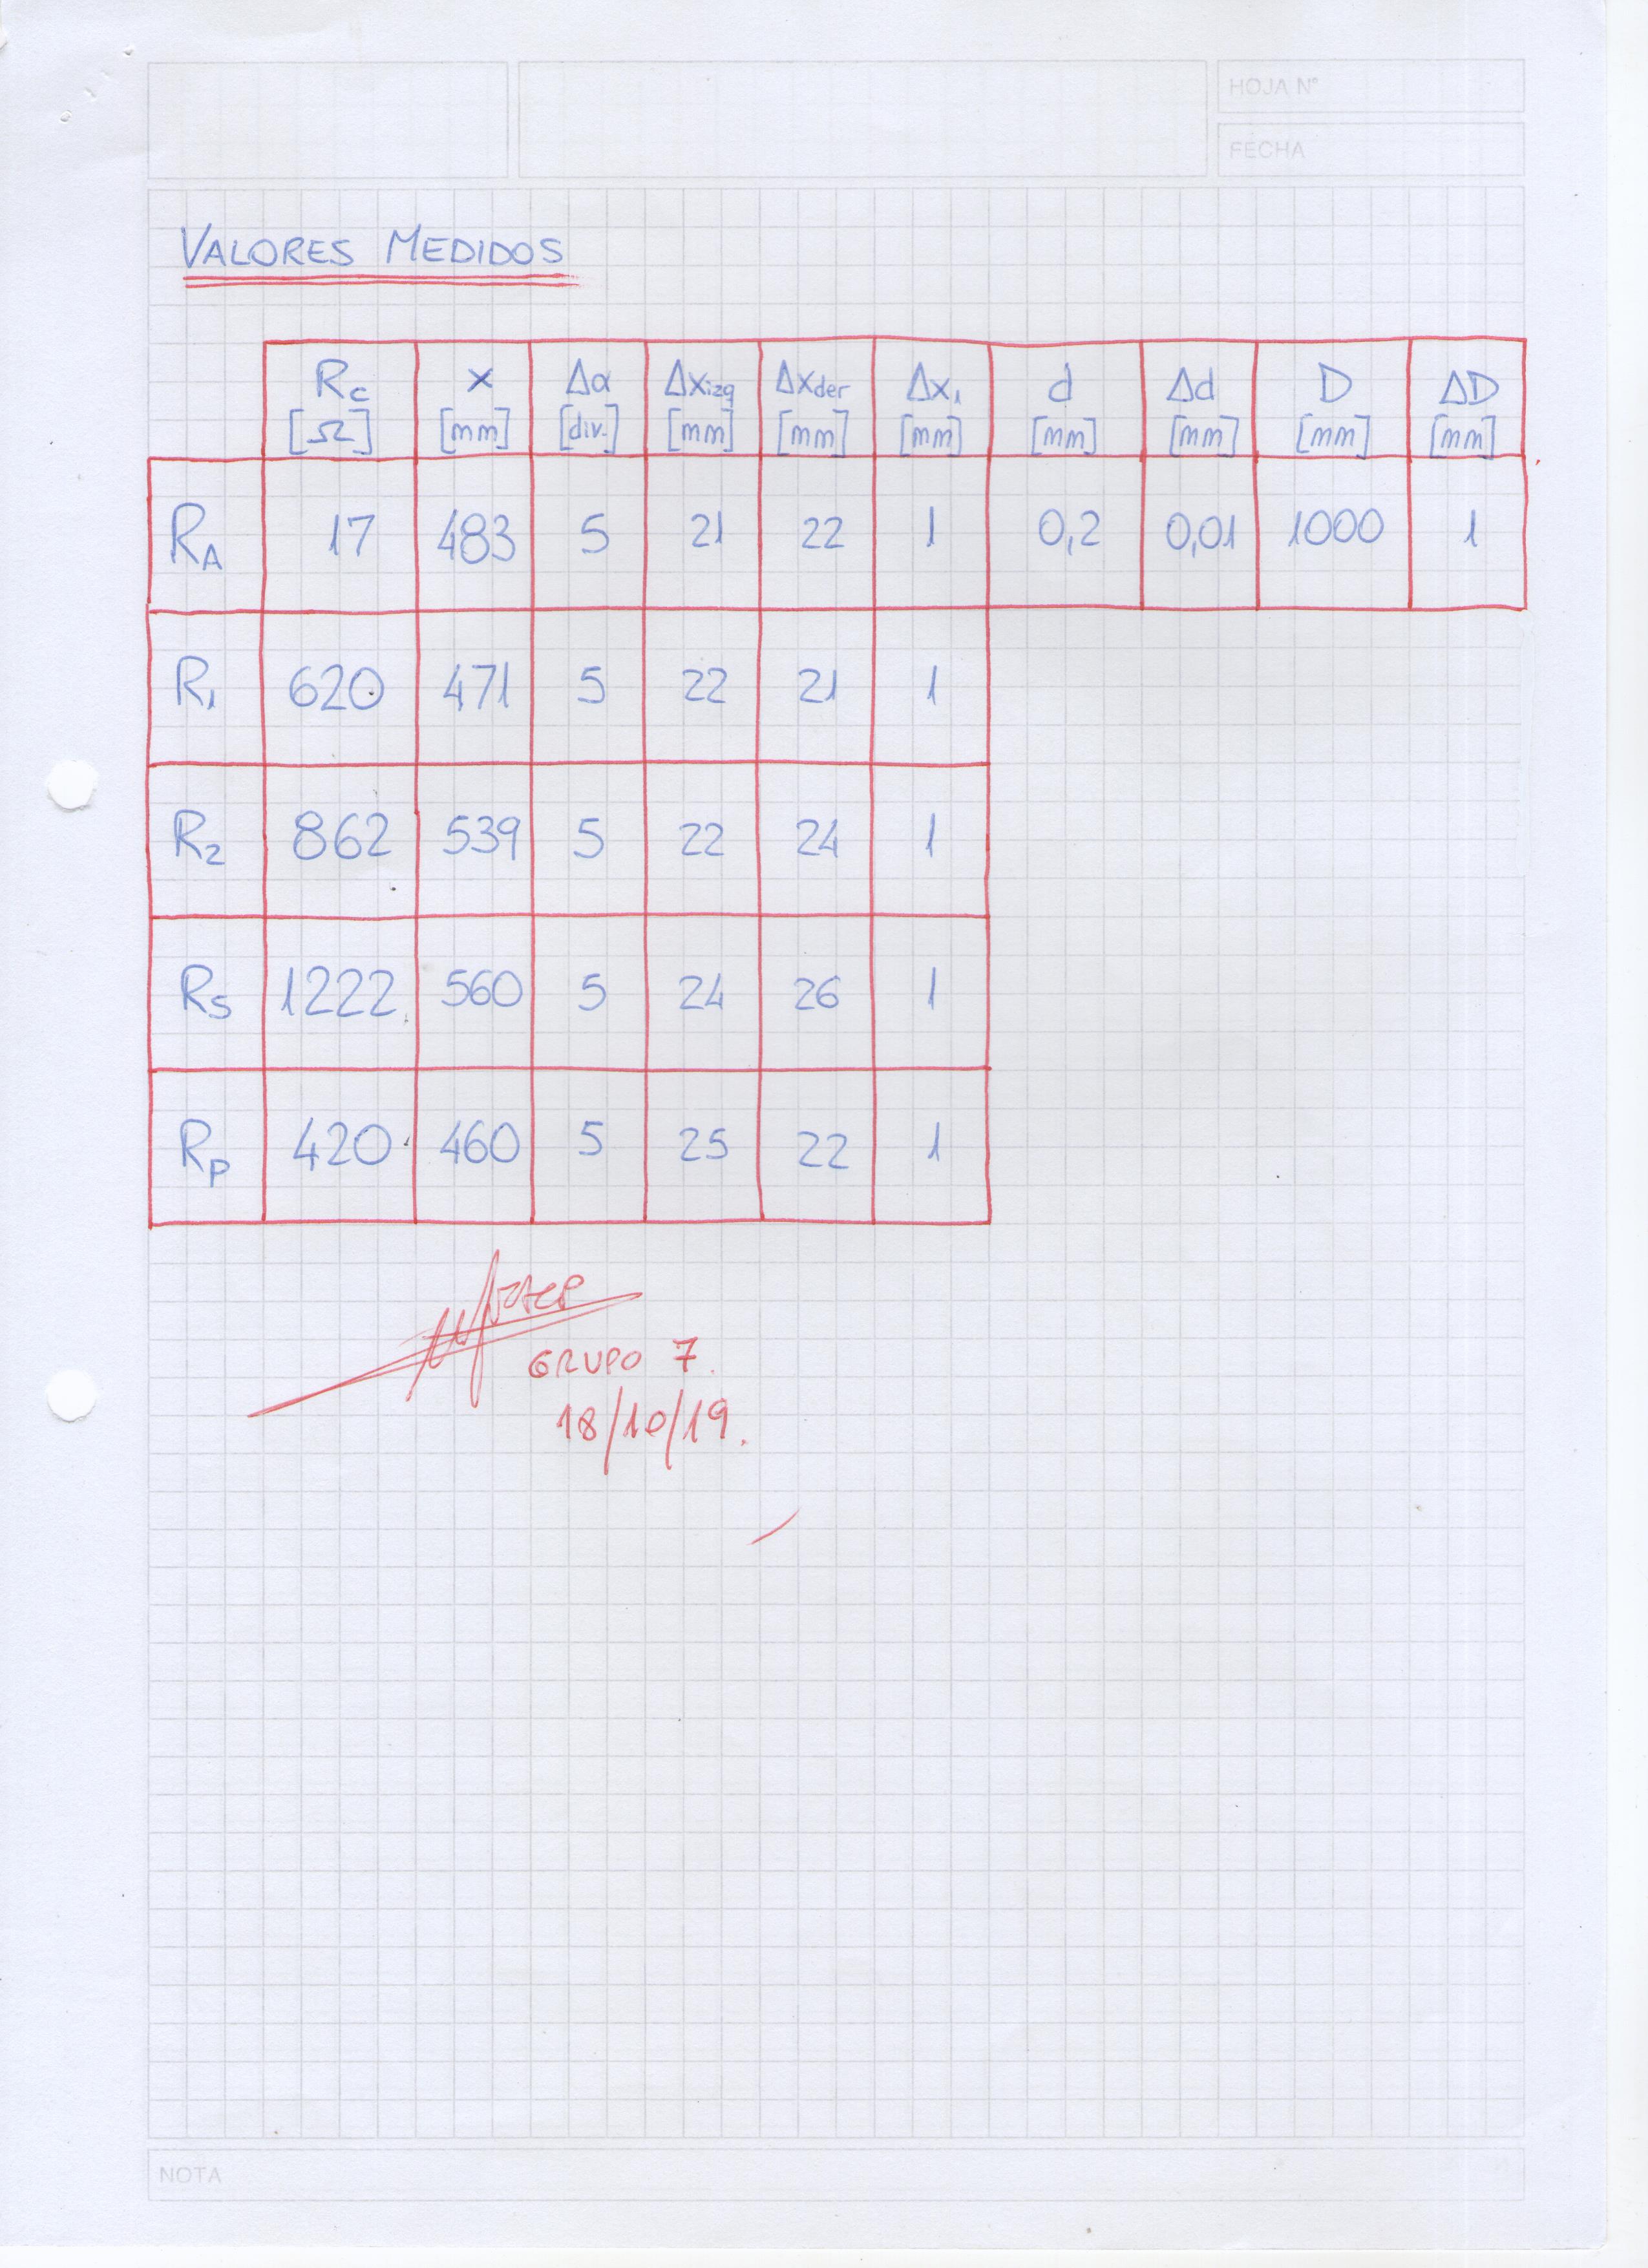 HOJA N°
FECHA
VALORES MEDIDOS
Rc [Ω] x [mm] Δα [div.] Δxizq [mm] Δxder [mm] Δx₁ [mm] d [mm] Δd [mm] D [mm] ΔD [mm]
RA 17 483 5 21 22 1 0,2 0,01 1000 1
R₁ 620 471 5 22 21 1
R₂ 862 539 5 22 24 1
RS 1222 560 5 24 26 1
RP 420 460 5 25 22 1
GRUPO 7.
18/10/19.
NOTA